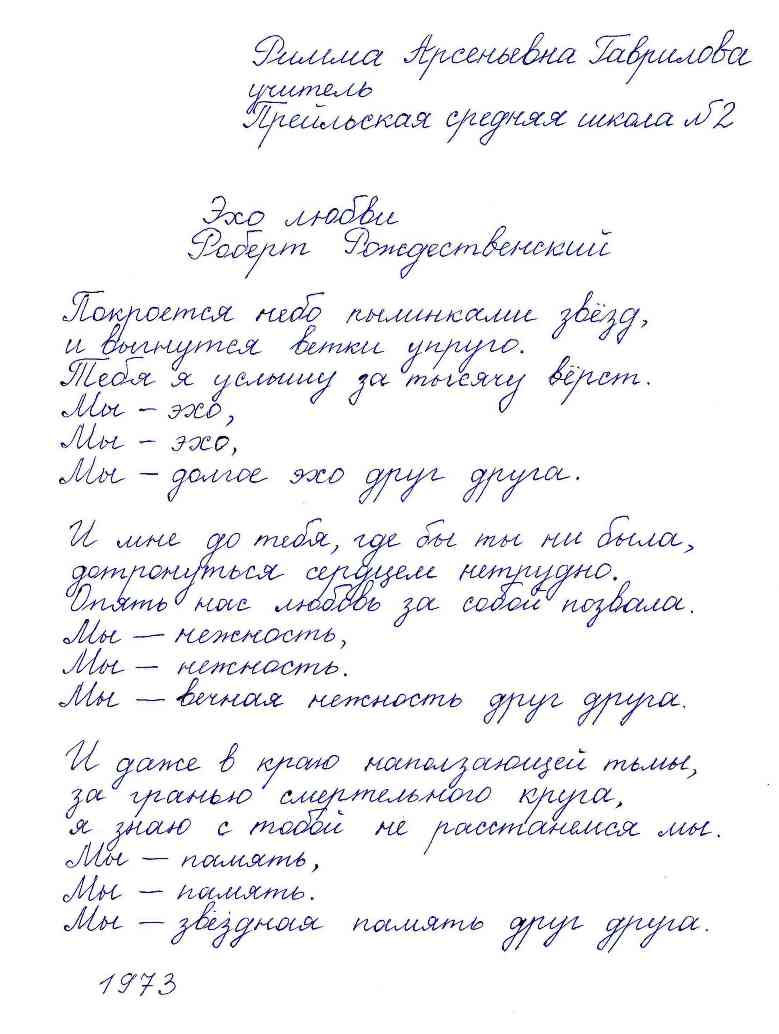 Римма Арсеньевна Гаврилова
учитель
Прейльская средняя школа №2
Эхо любви
Роберт Рождественский
Покроется небо пылинками звёзд,
и выгнутся ветки упруго.
Тебя я услышу за тысячу вёрст.
Мы – эхо,
Мы – эхо,
Мы – долгое эхо друг друга.
И мне до тебя, где бы ты ни была,
дотронуться сердцем нетрудно.
Опять нас любовь за собой позвала.
Мы – нежность,
Мы – нежность.
Мы – вечная нежность друг друга.
И даже в краю наползающей тьмы,
за гранью смертельного круга,
я знаю с тобой не расстанемся мы.
Мы – память,
Мы – память.
Мы – звёздная память друг друга.
1973